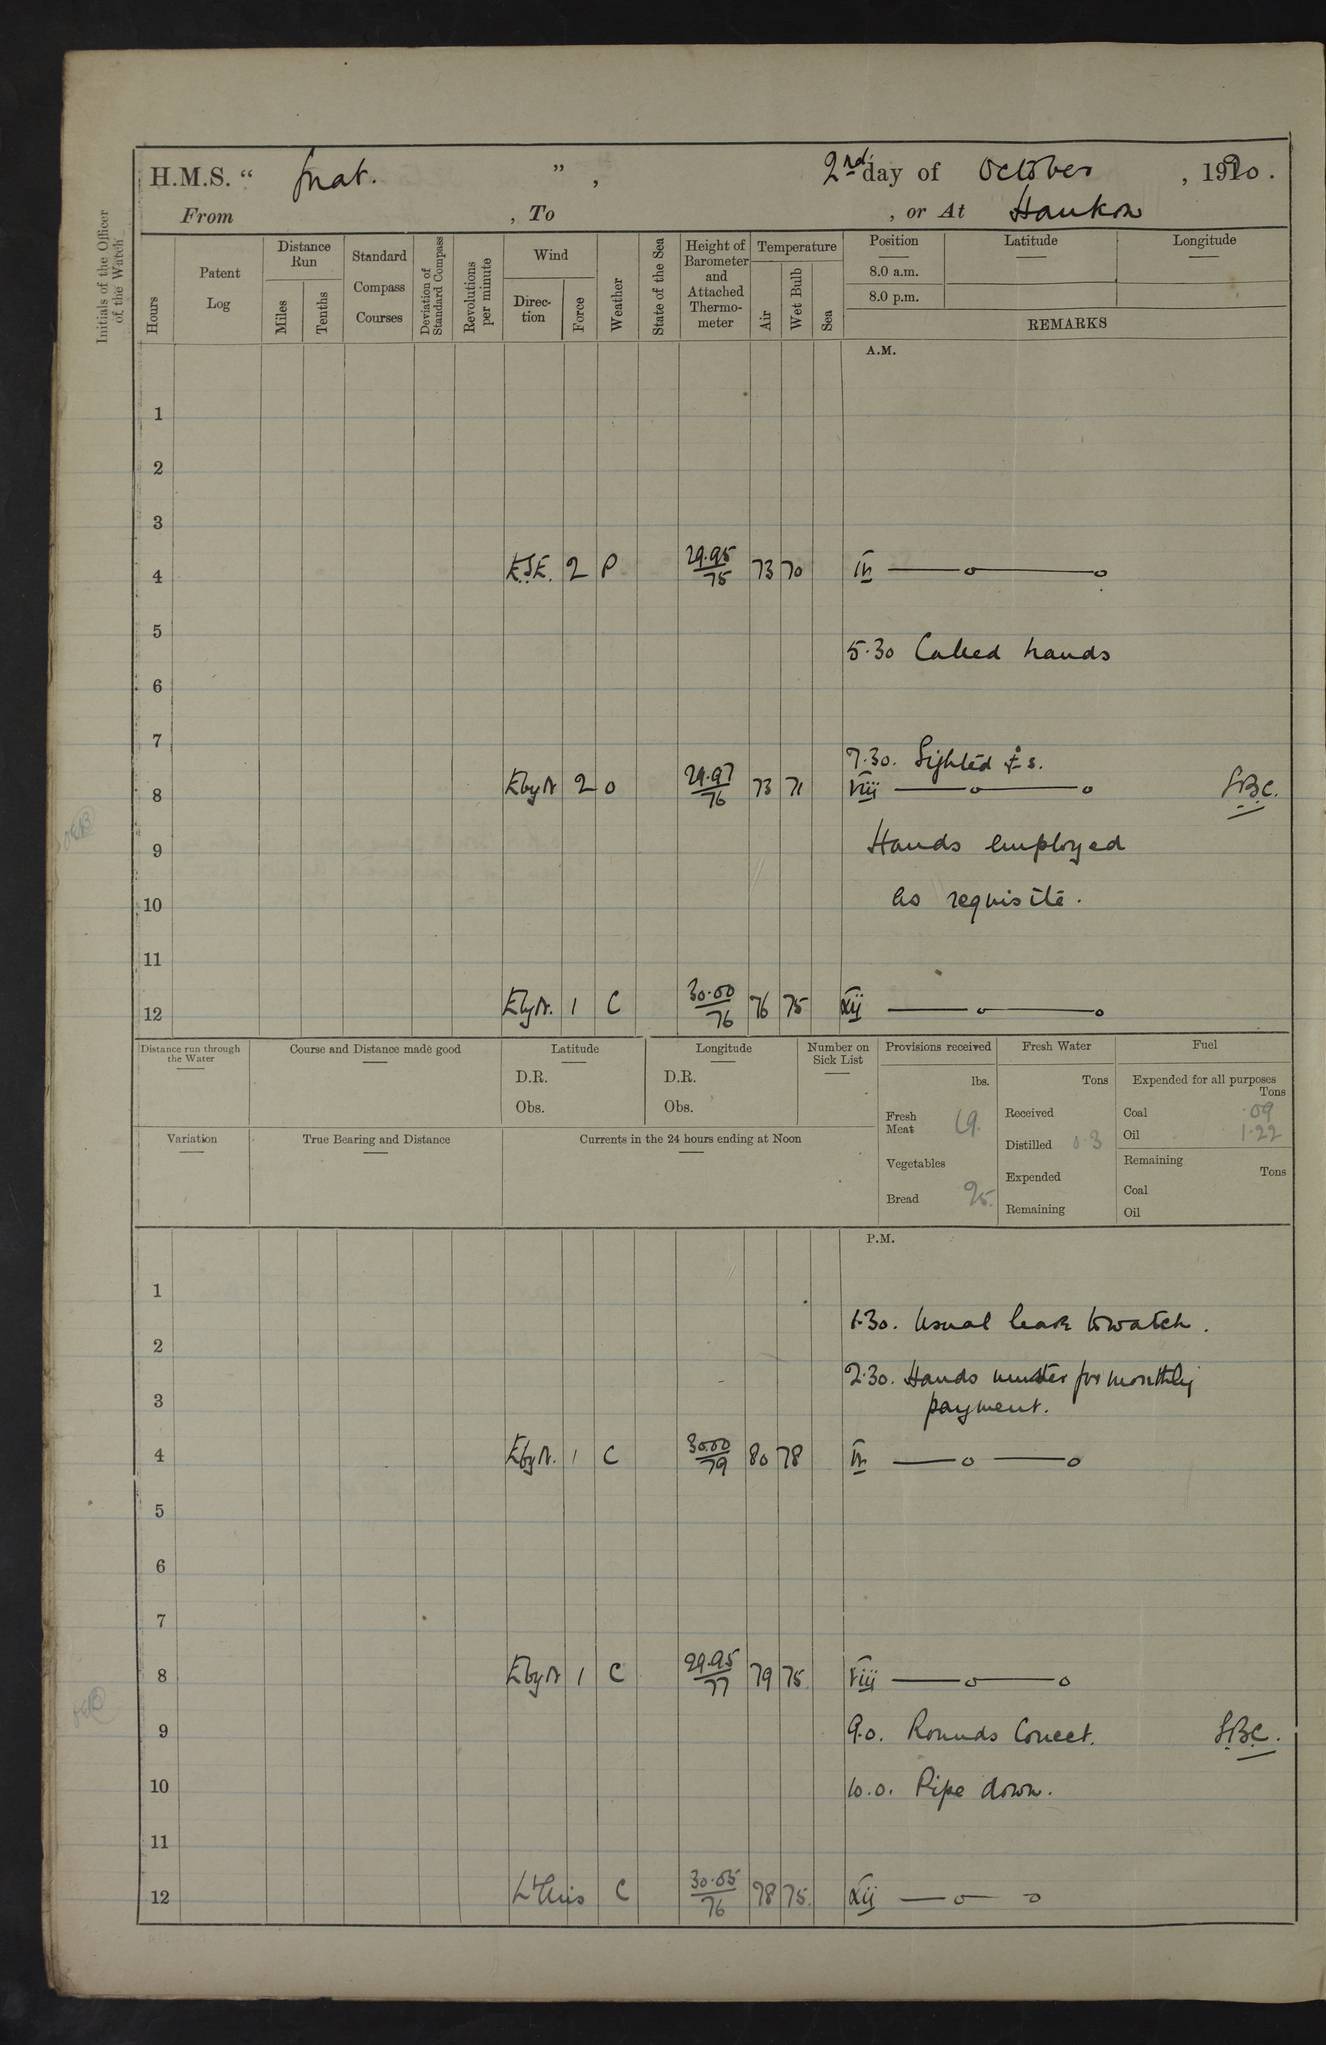 H.M.S. “ Gnat. ” , 2nd day of October , 1920 .
From , To , or At Hankow
Initials of the Officer of the Watch
Hours
Patent Log
Distance Run
Miles
Tenths
Standard Compass Courses
Deviation of Standard Compass
Revolutions per minute
Wind
Direc-tion
Force
Weather
State of the Sea
Height of Barometer and Attached Thermo-meter
Temperature
Air
Wet Bulb
Sea
Position Latitude Longitude
8.0 a.m.
8.0 p.m.
REMARKS
A.M.
1
2
3
4 E.S.E. 2 P 29.95/75 73 70 IV
5
5.30 Called hands
6
7
7.30. Sighted £ s.
8 EbyN 2 O 29.97/76 73 71 VIII
9 Hands employed
10 as requisite.
11
12 EbyN. 1 C 30.00/76 76 75 XII
Distance run through the Water
Course and Distance made good
Latitude
D.R.
Obs.
Longitude
D.R.
Obs.
Number on Sick List
Provisions received
lbs.
Fresh Meat 19.
Vegetables
Bread 25.
Fresh Water
Tons
Received
Distilled 0.3
Expended
Remaining
Fuel
Expended for all purposes
Tons
Coal .09
Oil 1.22
Remaining
Tons
Coal
Oil
Variation
True Bearing and Distance
Currents in the 24 hours ending at Noon
P.M.
1
1.30. Usual leave to watch.
2
2.30. Hands muster for monthly
3 payment.
4 EbyN. 1 C 30.00/79 80 78 IV
5
6
7
8 EbyN 1 C 29.95/77 79 75 VIII
9 9.0. Rounds Correct.
10 10.0. Pipe down.
11
12 Lt Airs C 30.05/76 78 75 XII